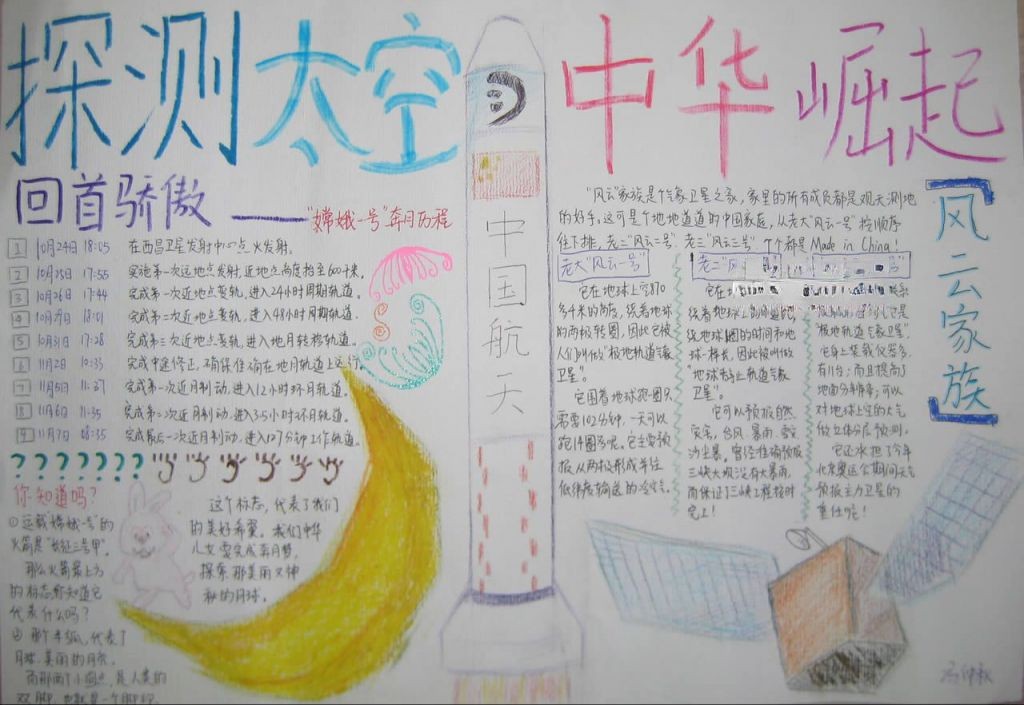 探测太空
中华崛起
回首骄傲——"嫦娥一号"奔月历程
1 10月24日 18:05 在西昌卫星发射中心点火发射。
2 10月25日 17:55 实施第一次远地点发射,近地点高度抬至600千米。
3 10月26日 17:44 完成第一次近地点变轨,进入24小时周期轨道。
4 10月29日 18:01 完成第二次近地点变轨,进入48小时周期轨道。
5 10月31日 17:28 完成第三次近地点变轨,进入地月转移轨道。
6 11月2日 10:33 完成中途修正,确保
7 11月5日 11:37 完成第一次近月制动,进入12小时环月轨道。
8 11月6日 11:35 完成第二次近月制动,进入3.5小时环月轨道。
9 11月7日 08:35 完成最后一次近月制动,进入127分钟工作轨道。
???????
你知道吗?
①运载"嫦娥一号"的
火箭是"长征三号甲"。
那么火箭最上方
的标志都知道它
代表什么吗?
那个半弧,代表了
月球.美丽的月亮。
而那两个小圆点,是人类的
双脚,也就是一个脚印。
这个标志,代表了我们
的美好希冀。我们中华
儿女要完成奔月梦,
探索那美丽又神
秘的月球。
中国航天
风云家族
"风云"家族是个气象卫星之家,家里的所有成员都是观天测地
的好手,这可是个地地道道的中国家庭,从老大"风云一号"按顺序
往下排,老二"风云二号",老三"风云三号",个个都是Made in China!
老大"风云一号"
它在地球上空870
多千米的高度,绕着地球
的南极转圈,因此它被
人们叫做"极地轨道气象
卫星"。
它围着地球跑一圈只
需要102分钟,一天可以
跑14圈多呢。它主要预
报从两极形成并往
低纬度输送的冷空气。
老二"风
它在
绕着地球
绕地球圈的时间和地
球一样长,因此被叫做
"地球静止轨道气象
卫星"。
它可以预报自然
灾害,台风、暴雨、雪灾
沙尘暴,曾经准确预报
三峡大坝没有大暴雨,
而保证了三峡工程按时
完工!
"极地轨道气象卫星",
它身上装载仪器多,
有11台;而且提高了
地面分辨率;可以
对地球上空的大气
做立体分层预测。
它还承担了今年
北京奥运会期间天气
预报主力卫星的
重任呢!